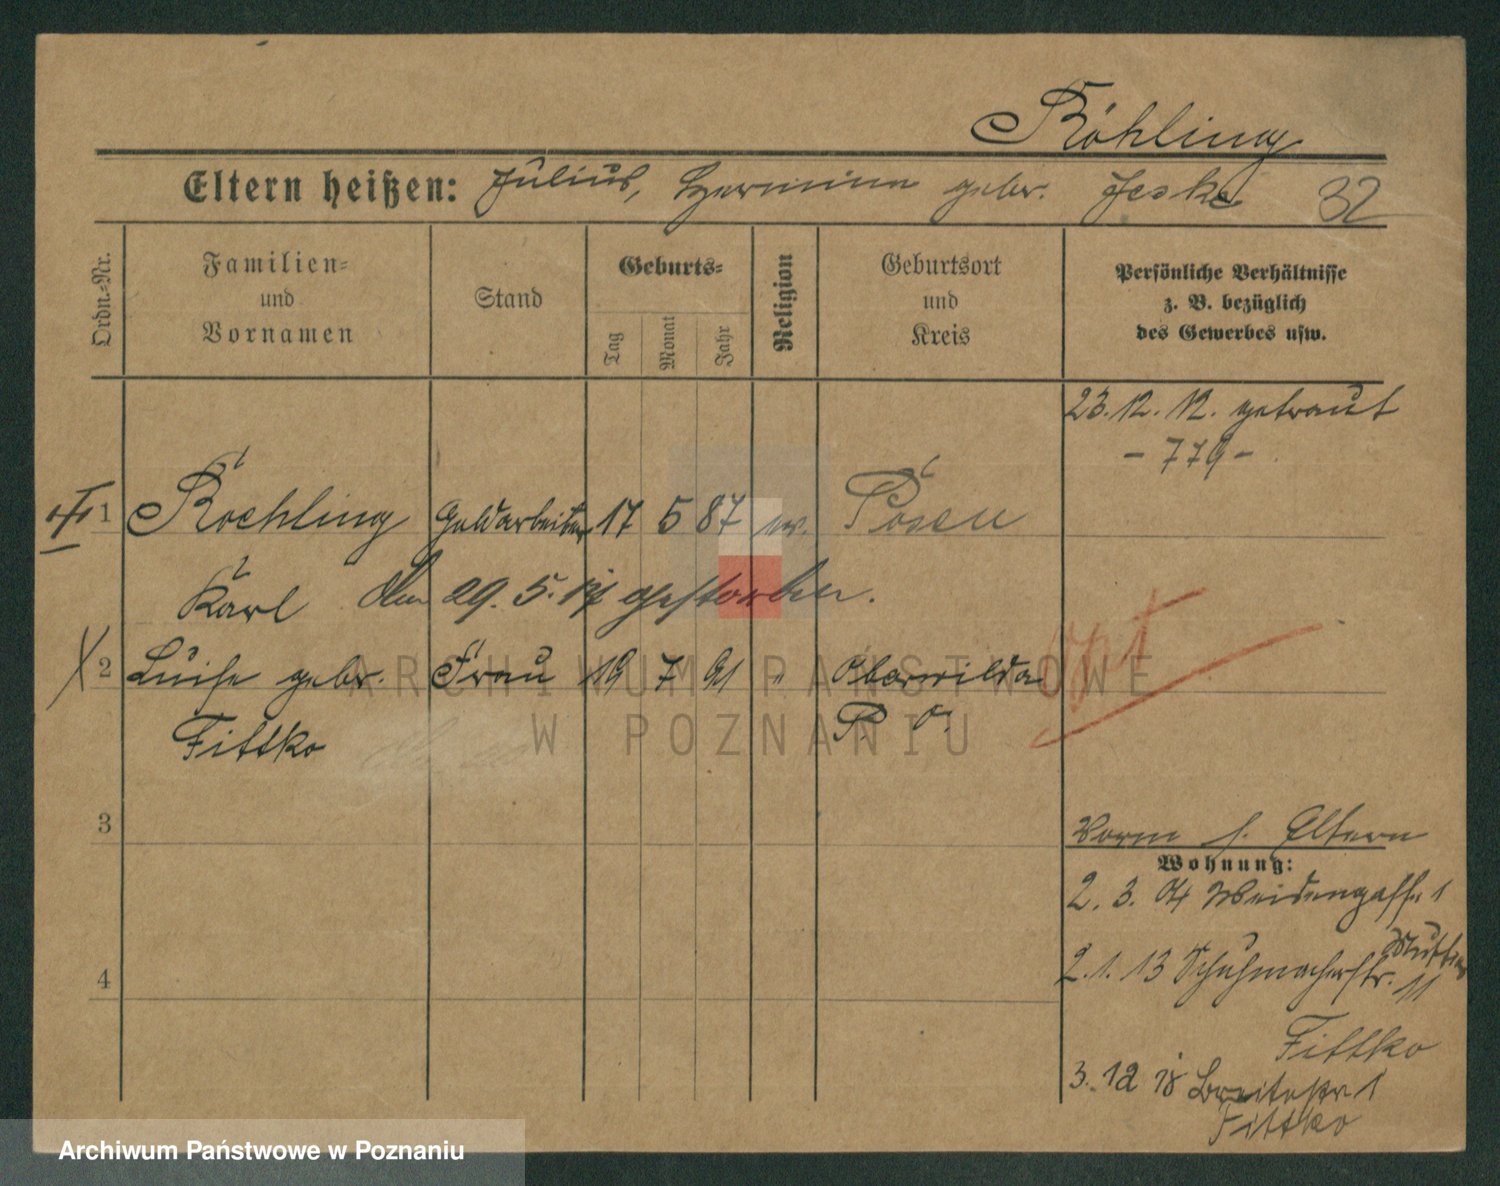 Röhling
Eltern heißen: Julius, Hermine gebr. Jeske 32
Ordn.-Nr.
Familien-
und
Vornamen
Stand
Geburts-
Tag
Monat
Jahr
Religion
Geburtsort
und
Kreis
Persönliche Verhältnisse
z. B. bezüglich
des Gewerbes usw.
23.12.12. getraut
- 779 -
1 Roehling Goldarbeiter 17 5 87 ev. Posen
Karl den 29. 5. 17 gestorben.
2 Luise gebr. Frau 19 7 91 " Oberwilda
Fittko P. O.
opt
3
Vorm s. Eltern
Wohnung:
2. 3. 04 Weidengasse 1
Mutter
2. 1. 13 Schuhmacherstr. 11
4
Fittko
3. 12 18 Breitestr 1
Fittko
ARCHIWUM PAŃSTWOWE
W POZNANIU
Archiwum Państwowe w Poznaniu